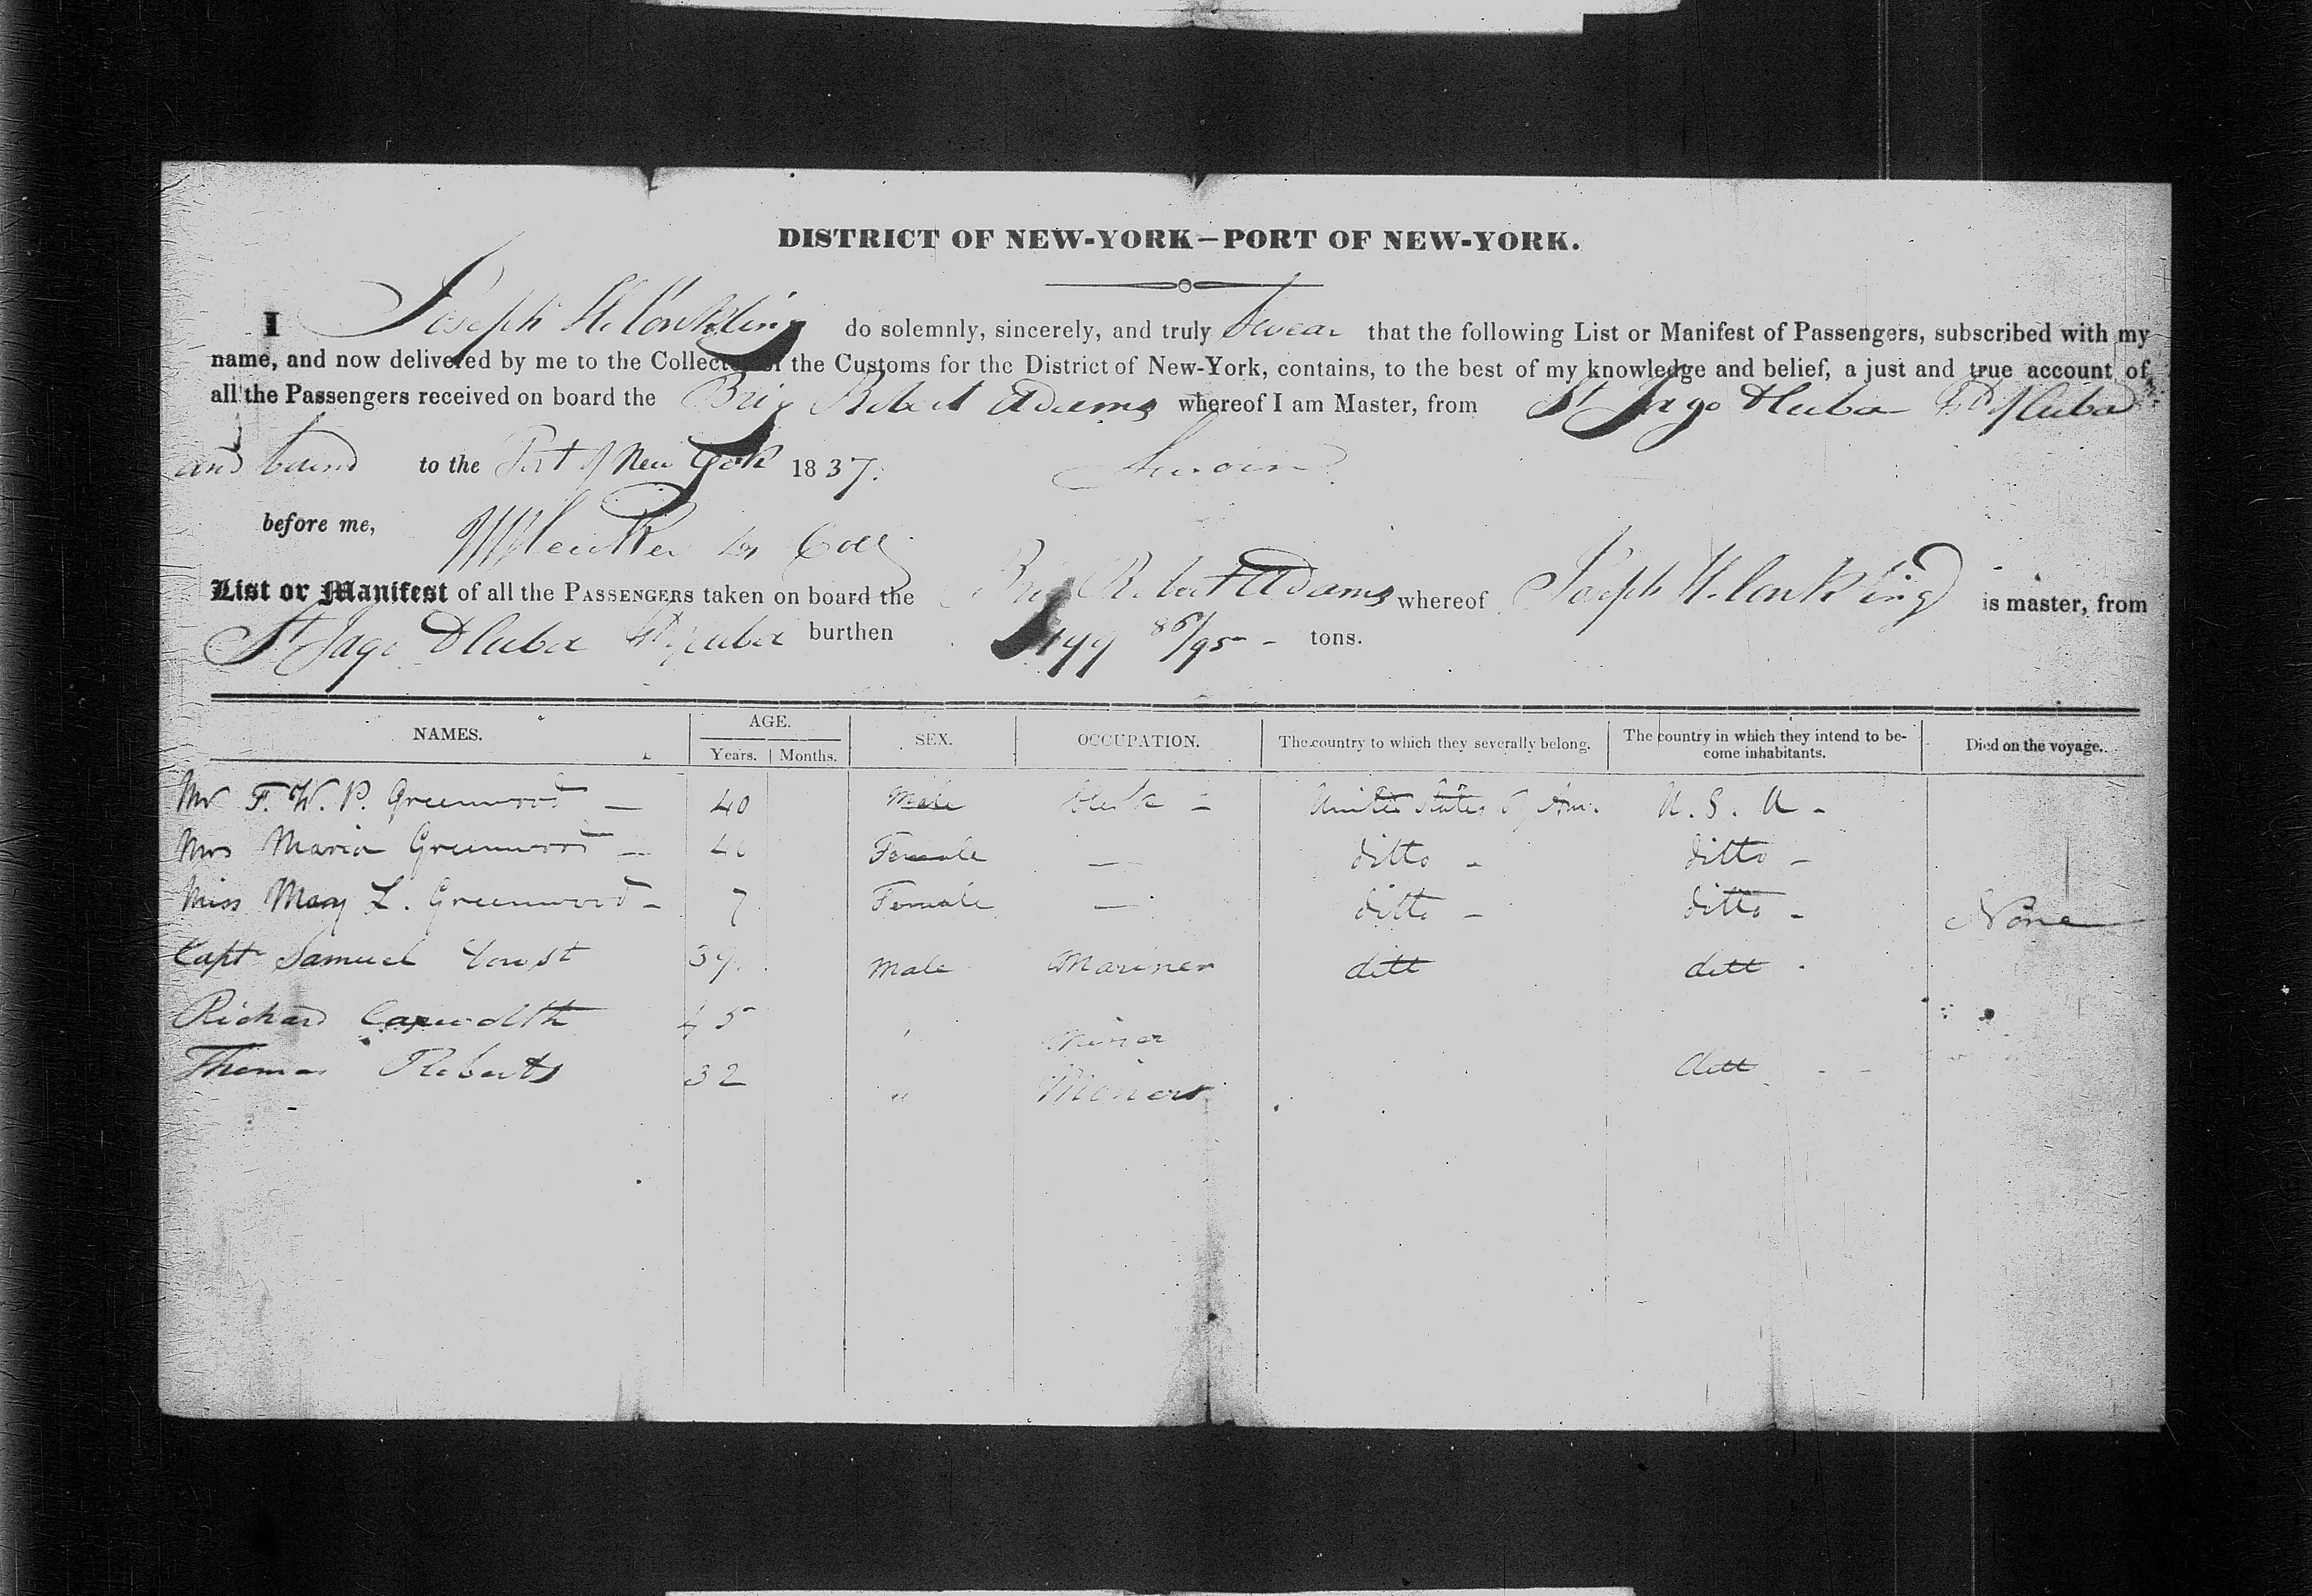 DISTRICT OF NEW-YORK—PORT OF NEW-YORK.
I Joseph H. Conkling do solemnly, sincerely, and truly Swear that the following List or Manifest of Passengers, subscribed with my
name, and now delivered by me to the Collector of the Customs for the District of New-York, contains, to the best of my knowledge and belief, a just and true account of
all the Passengers received on board the Brig Robert Adams whereof I am Master, from St Jago D Cuba
and bound to the Port of New York 1837. Sworn
before me,
List or Manifest of all the PASSENGERS taken on board the Brig Robert Adams whereof Joseph H. Conkling is master, from
St Jago D Cuba burthen 86/95 - tons.
NAMES. AGE. SEX. OCCUPATION. The country to which they severally belong. The country in which they intend to be- Died on the voyage.
Years. Months. come inhabitants.
Mr F. W. P. Greenwood — 40 Male Clerk - United States of Am. U. S. A -
Mrs Maria Greenwood — Female — ditto - ditto -
Miss Mary L. Greenwood - 7 Female — ditto - ditto - None
Capt Samuel 39. Male Mariner ditt ditt
Richard 45 " Miner
Thomas Roberts 32 " Miner ditt - -